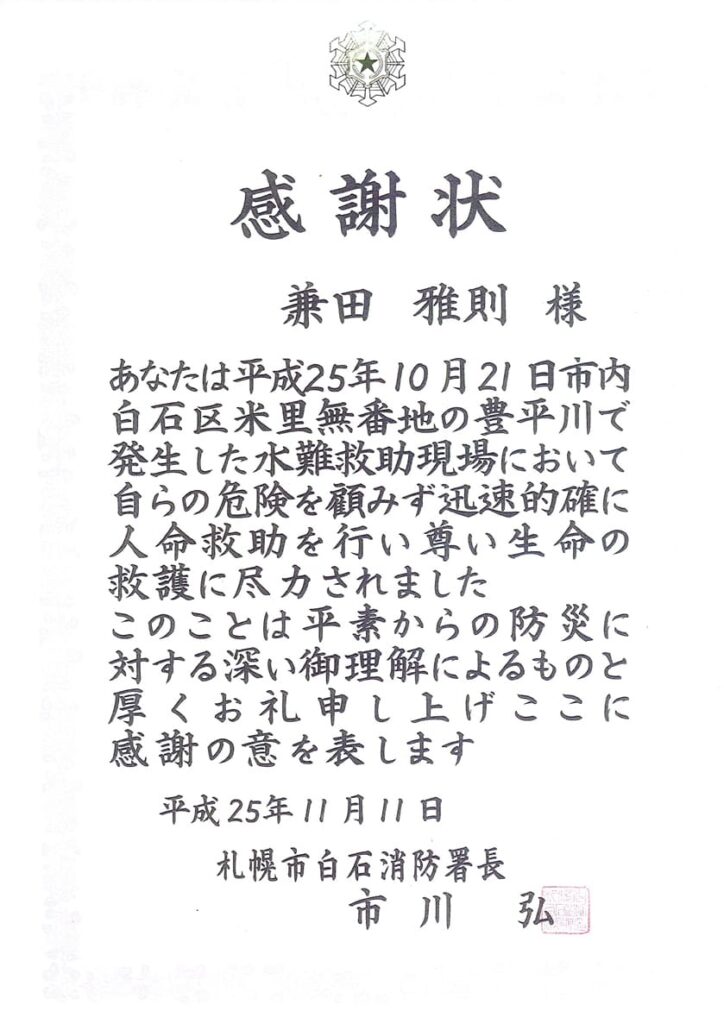 感謝状
兼田 雅則 様
あなたは平成25年10月21日市内
白石区米里無番地の豊平川で
発生した水難救助現場において
自らの危険を顧みず迅速的確に
人命救助を行い尊い生命の
救護に尽力されました
このことは平素からの防災に
対する深い御理解によるものと
厚くお礼申し上げここに
感謝の意を表します
平成25年11月11日
札幌市白石消防署長
市川 弘